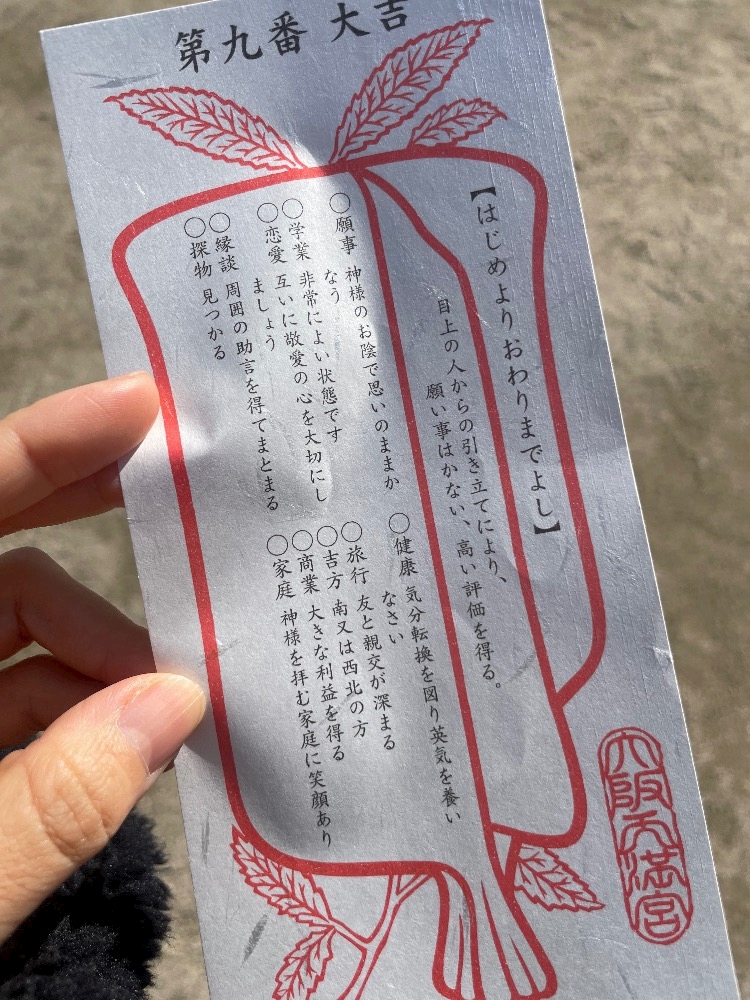 第九番 大吉
【はじめより おわりまでよし】
目上の人からの引き立てにより、
願い事はかない、高い評価を得る。
○願事 神様のお陰で思いのままか
なう
○学業 非常によい状態です
○恋愛 互いに敬愛の心を大切にし
ましょう
○縁談 周囲の助言を得てまとまる
○探物 見つかる
○健康 気分転換を図り英気を養い
なさい
○旅行 友と親交が深まる
○吉方 南又は西北の方
○商業 大きな利益を得る
○家庭 神様を拝む家庭に笑顔あり
大阪天満宮